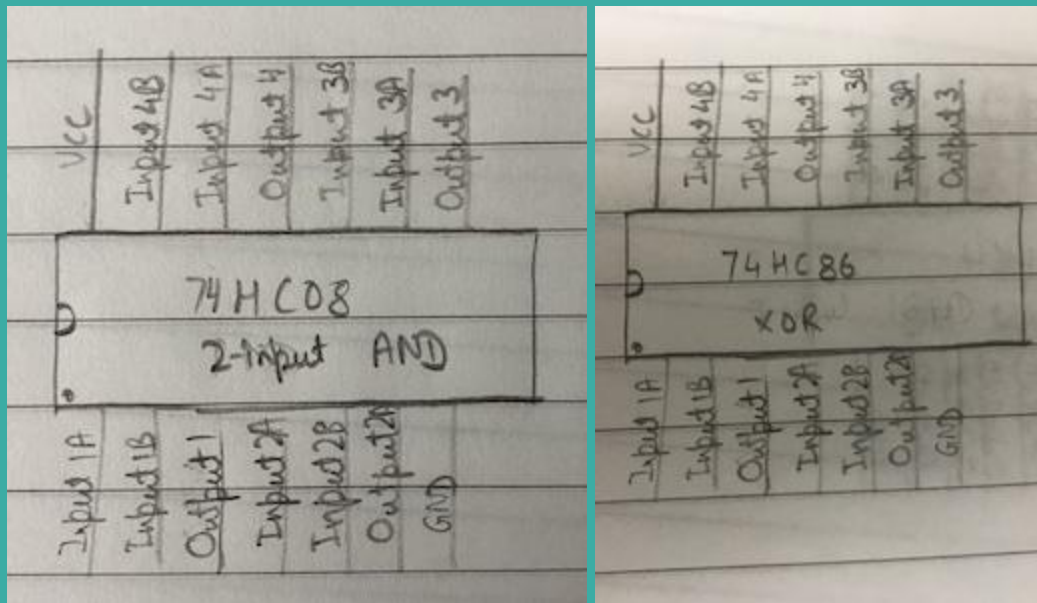 VCC
Input 4B
Input 4A
Output 4
Input 3B
Input 3A
Output 3
74HC08
2-input AND
Input 1A
Input 1B
Output 1
Input 2A
Input 2B
GND
VCC
Input 4B
Input 4A
Output 4
Input 3B
Input 3A
Output 3
74HC86
XOR
Input 1A
Input 1B
Output 1
Input 2A
Input 2B
GND